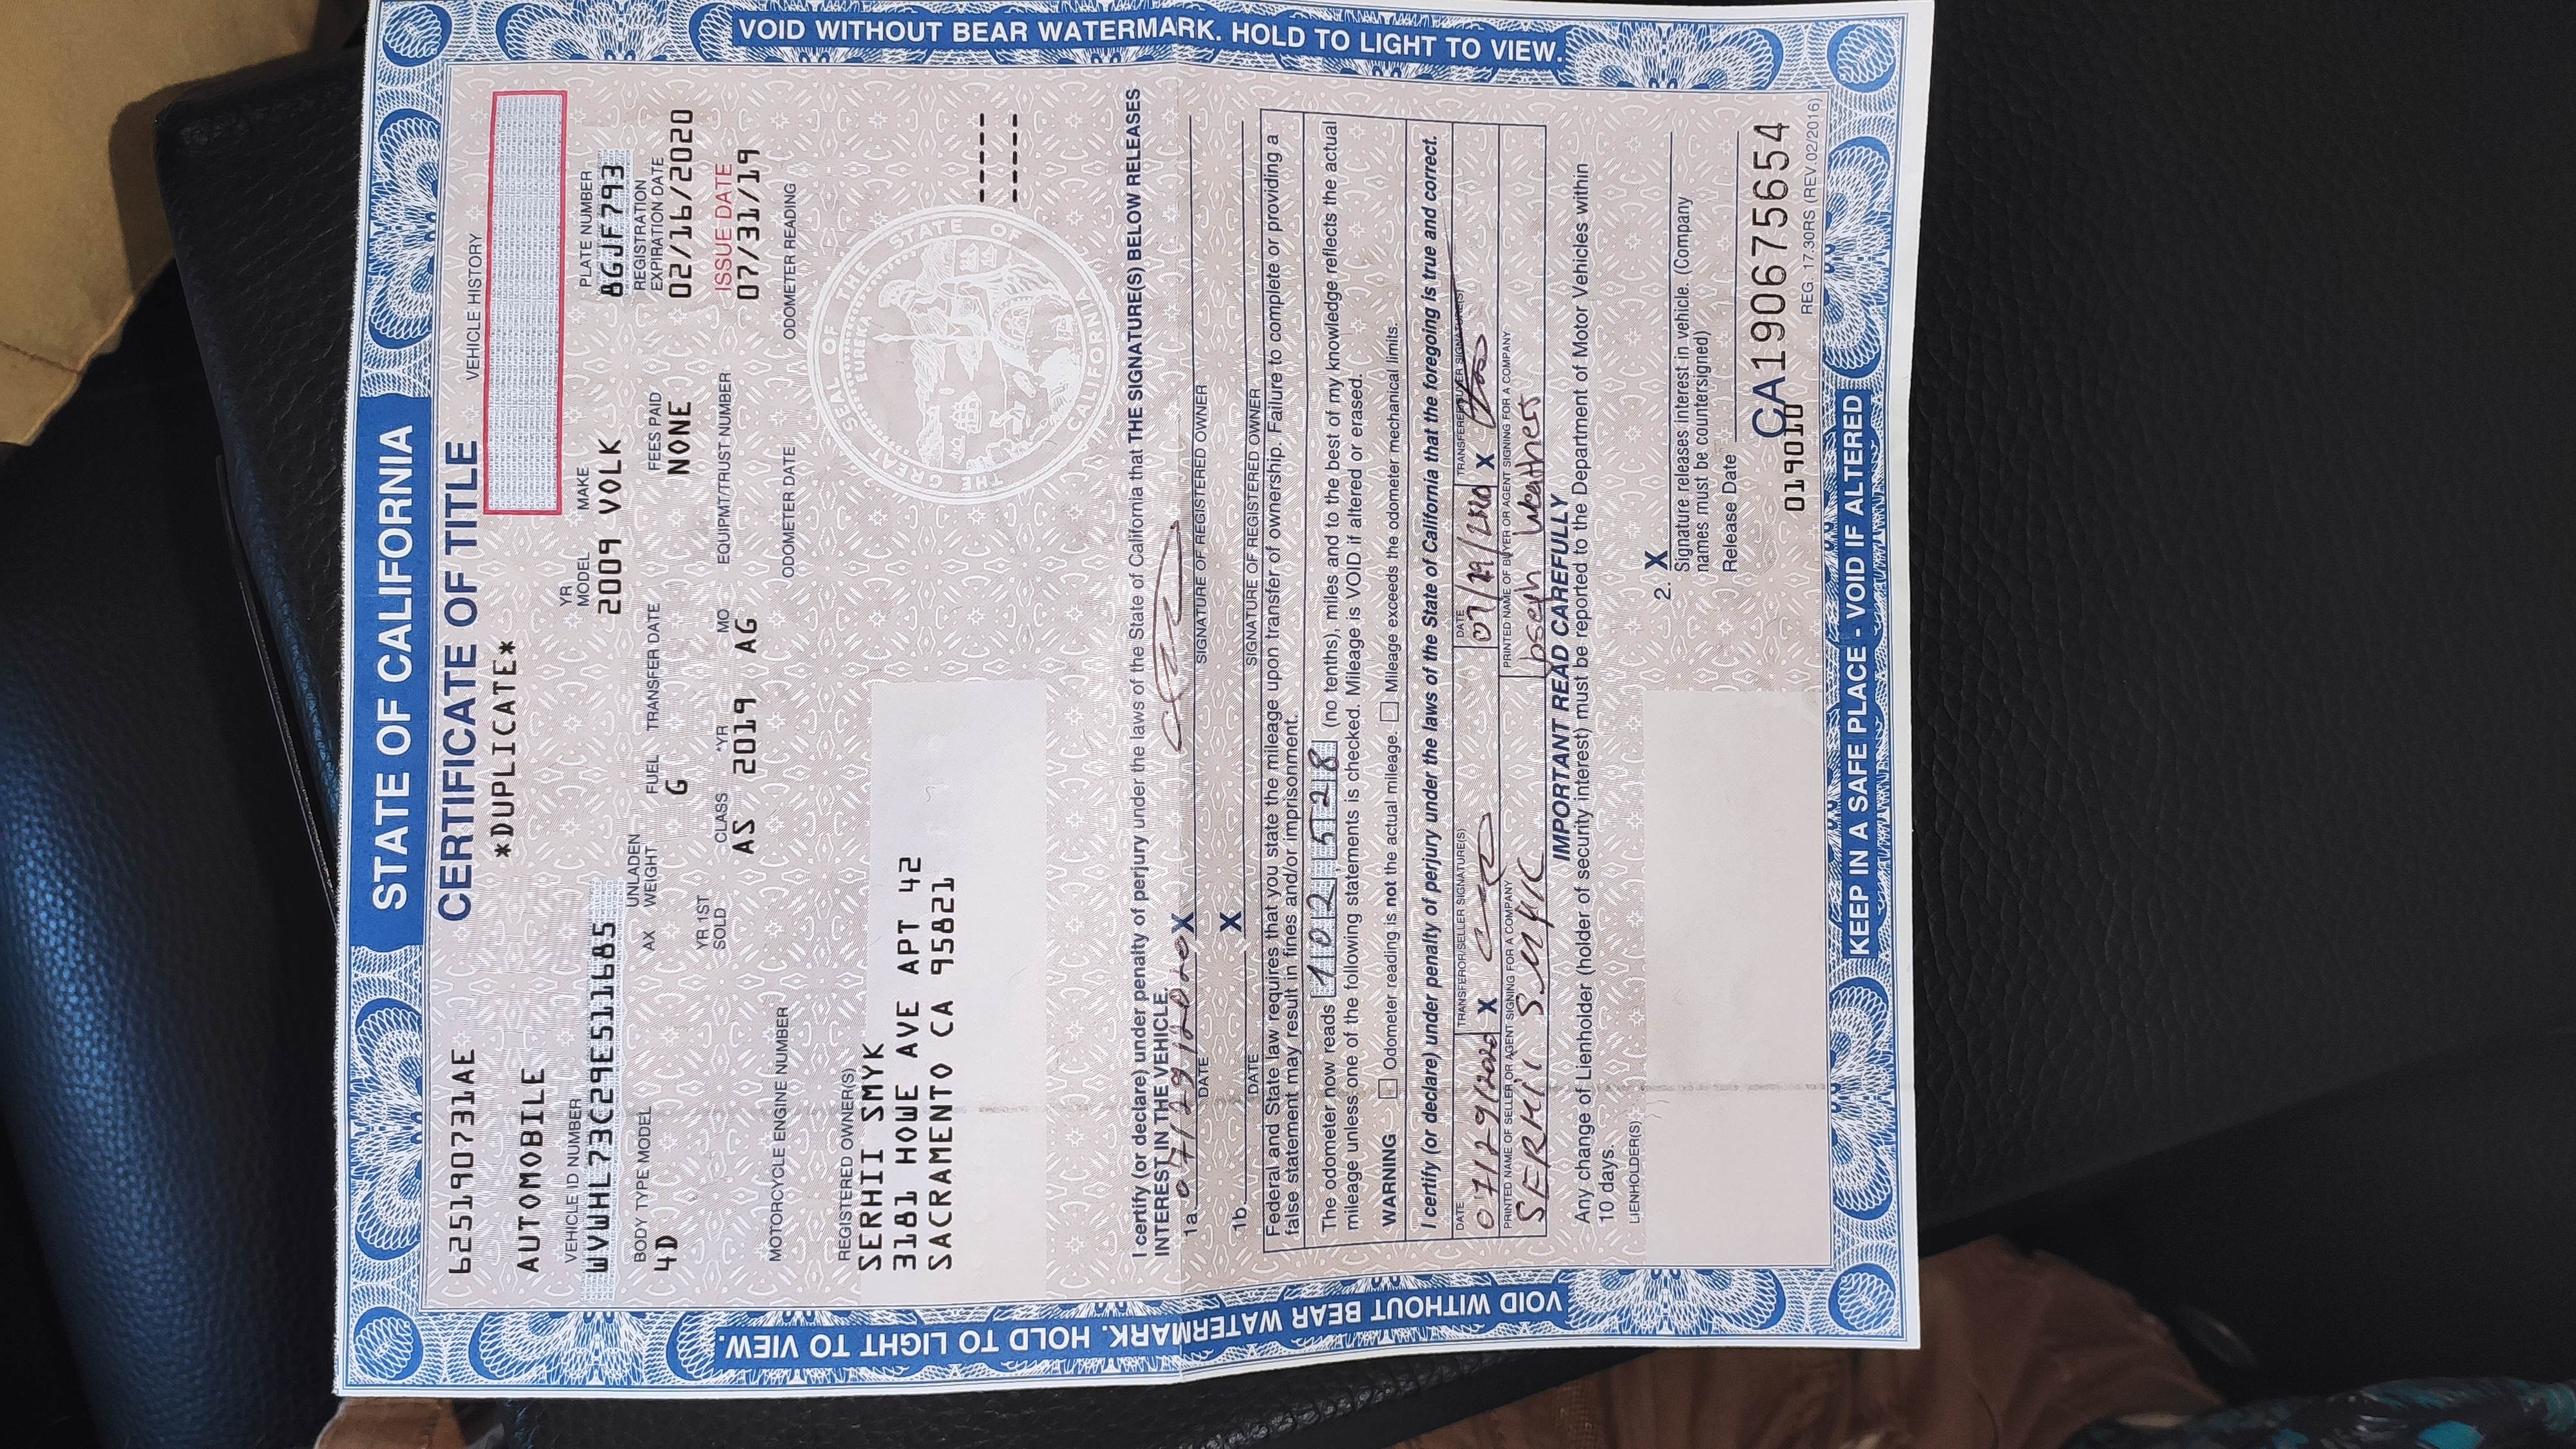 VOID WITHOUT BEAR WATERMARK. HOLD TO LIGHT TO VIEW.
VOID WITHOUT BEAR WATERMARK. HOLD TO LIGHT TO VIEW.
STATE OF CALIFORNIA
CERTIFICATE OF TITLE
6251907731AE
*DUPLICATE*
VEHICLE HISTORY
AUTOMOBILE
VEHICLE ID NUMBER
YR MODEL
MAKE
PLATE NUMBER
WVWHL73C29E511685
2009 VOLK
8GJF793
BODY TYPE MODEL
AX
UNLADEN WEIGHT
FUEL
TRANSFER DATE
FEES PAID
REGISTRATION EXPIRATION DATE
4D
G
NONE
02/16/2020
YR 1ST SOLD
CLASS
*YR
MO
EQUIPMT/TRUST NUMBER
ISSUE DATE
AS 2019 AG
07/31/19
MOTORCYCLE ENGINE NUMBER
ODOMETER DATE
ODOMETER READING
REGISTERED OWNER(S)
SERHII SMYK
3181 HOWE AVE APT 42
SACRAMENTO CA 95821
THE GREAT SEAL OF THE STATE OF CALIFORNIA
EUREKA
-----
-----
I certify (or declare) under penalty of perjury under the laws of the State of California that THE SIGNATURE(S) BELOW RELEASES
INTEREST IN THE VEHICLE.
1a. 07/29/2020 X
DATE
SIGNATURE OF REGISTERED OWNER
1b. X
DATE
SIGNATURE OF REGISTERED OWNER
Federal and State law requires that you state the mileage upon transfer of ownership. Failure to complete or providing a
false statement may result in fines and/or imprisonment.
The odometer now reads 102,528 (no tenths), miles and to the best of my knowledge reflects the actual
mileage unless one of the following statements is checked. Mileage is VOID if altered or erased.
WARNING Odometer reading is not the actual mileage. Mileage exceeds the odometer mechanical limits.
I certify (or declare) under penalty of perjury under the laws of the State of California that the foregoing is true and correct.
DATE
TRANSFEROR/SELLER SIGNATURE(S)
DATE
TRANSFEREE/BUYER SIGNATURE(S)
07/29/2020 X
07/29/2020 X
PRINTED NAME OF SELLER OR AGENT SIGNING FOR A COMPANY
PRINTED NAME OF BUYER OR AGENT SIGNING FOR A COMPANY
SERHII SMYK
Joseph Weathers
IMPORTANT READ CAREFULLY
Any change of Lienholder (holder of security interest) must be reported to the Department of Motor Vehicles within
10 days.
LIENHOLDER(S)
2. X
Signature releases interest in vehicle. (Company
names must be countersigned)
Release Date
CA190675654
019010
REG. 17.30RS (REV.02/2016)
KEEP IN A SAFE PLACE - VOID IF ALTERED